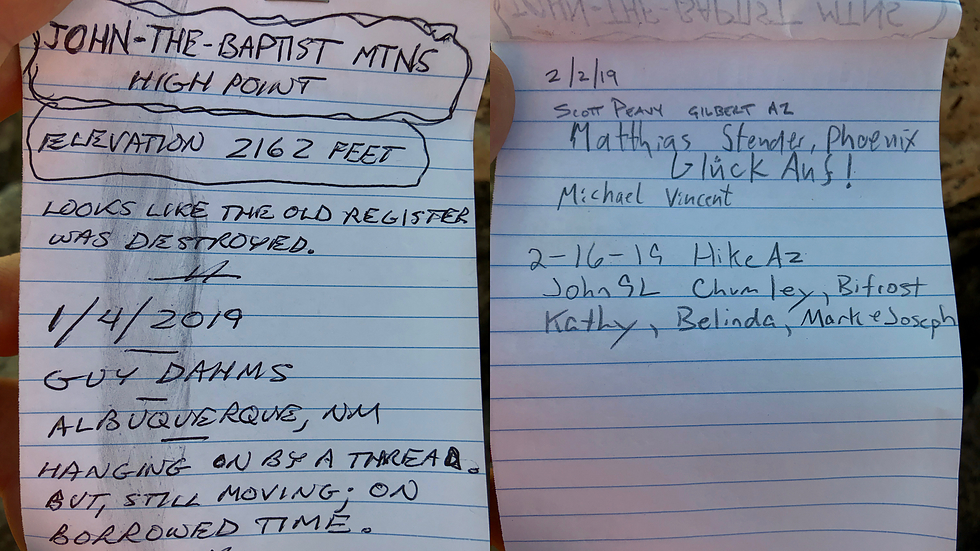 JOHN-THE-BAPTIST MTNS
HIGH POINT
ELEVATION 2162 FEET
LOOKS LIKE THE OLD REGISTER
WAS DESTROYED.
1/4/2019
GUY DAHMS
ALBUQUERQUE, NM
HANGING ON BY A THREAD.
BUT, STILL MOVING; ON
BORROWED TIME.
JOHN-THE-BAPTIST MTNS
2/2/19
SCOTT PEAVY GILBERT AZ
Matthias Stender, Phoenix
Glück Auf!
Michael Vincent
2-16-19 HikeAz
John9L Chumley, Bifrost
Kathy, Belinda, Mark & Joseph